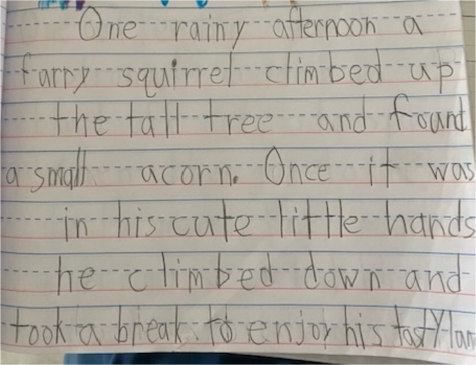 One rainy afternoon a
farry squirrel climbed up
the tall tree and found
a small acorn. Once it was
in his cute little hands
he climbed down and
took a break to enjoy his tasty